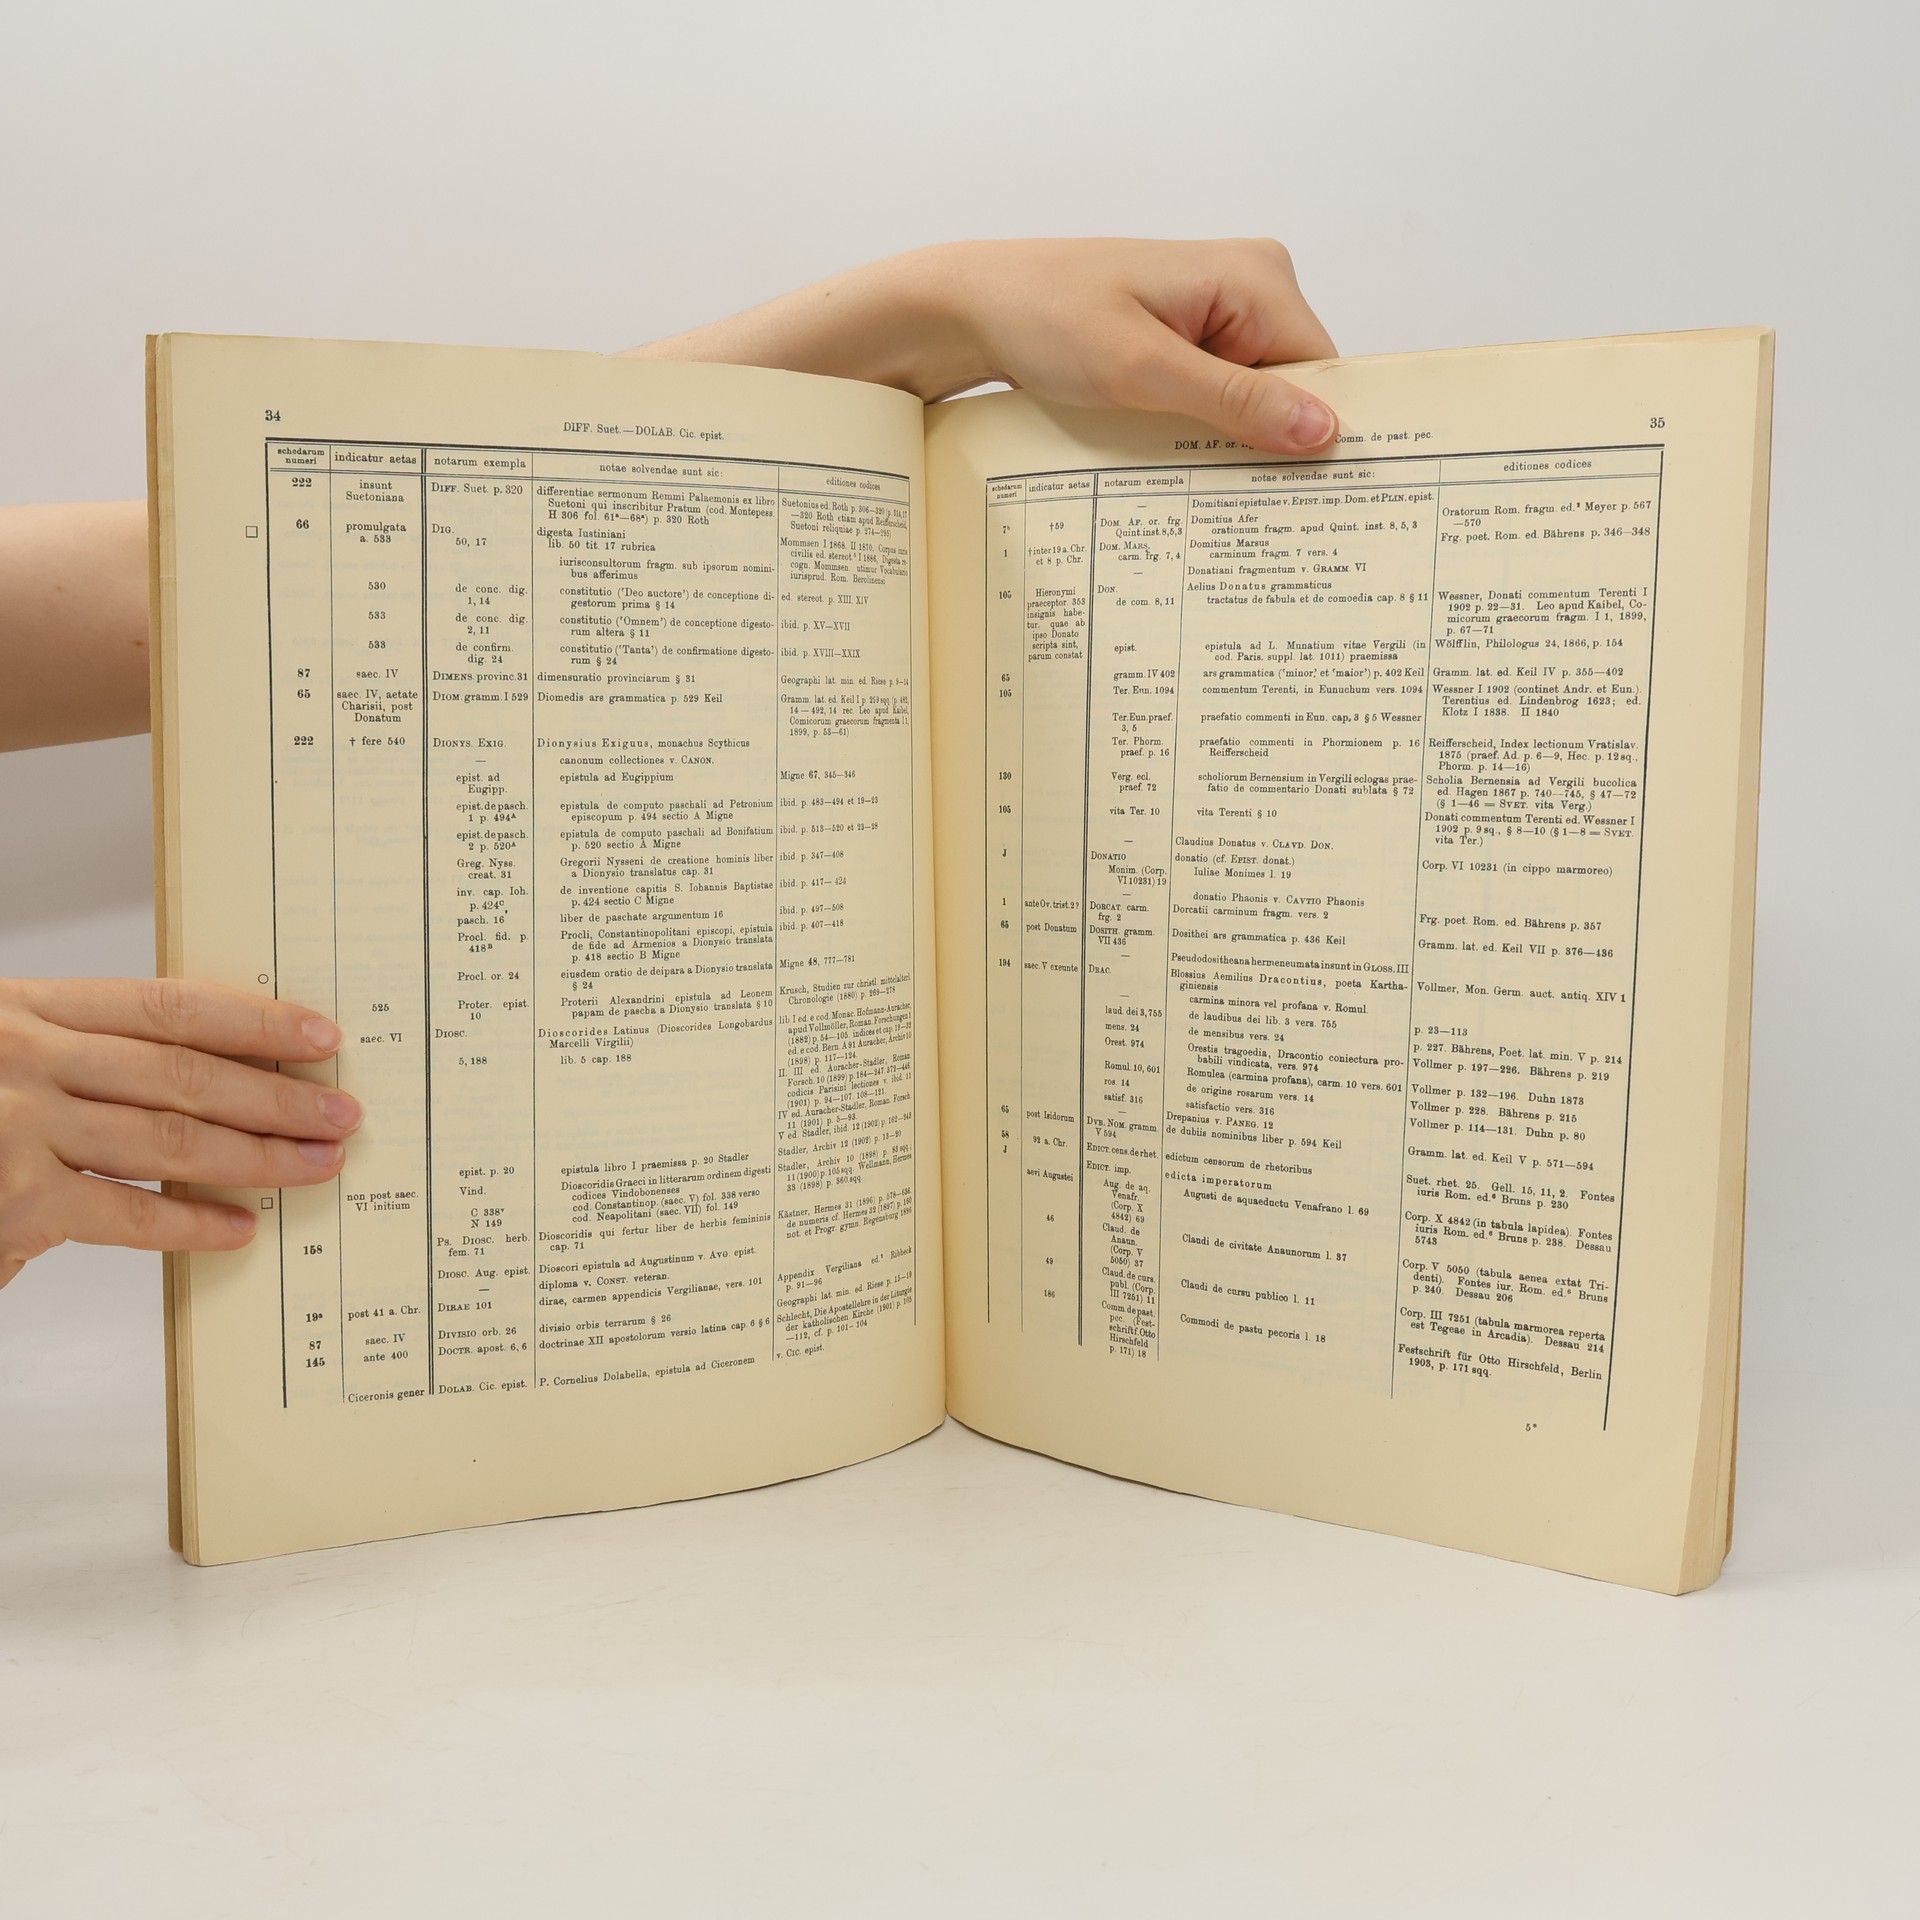 34
DIFF. Suet.—DOLAB. Cic. epist.
schedarum numeri | indicatur aetas | notarum exempla | notae solvendae sunt sic: | editiones codices
222 | insunt Suetoniana | DIFF. Suet. p. 320 | differentiae sermonum Remmi Palaemonis ex libro Suetoni qui inscribitur Pratum (cod. Montepess H 306 fol. 61ᵃ—68ᵃ) p. 320 Roth | Suetonius ed. Roth p. 306—320 (p. 314, 17 —320 Roth etiam apud Reifferscheid, Suetoni reliquiae p. 274—295)
66 | promulgata a. 533 | DIG. 50, 17 | digesta Iustiniani lib. 50 tit. 17 rubrica | Mommsen I 1868. II 1870. Corpus iuris civilis ed. stereot.⁵ I 1886, Digesta recogn. Mommsen. utimur Vocabulario iurisprud. Rom. Berolinensi
iurisconsultorum fragm. sub ipsorum nominibus afferimus
530 | de conc. dig. 1, 14 | constitutio ('Deo auctore') de conceptione digestorum prima § 14 | ed. stereot. p. XIII. XIV
533 | de conc. dig. 2, 11 | constitutio ('Omnem') de conceptione digestorum altera § 11 | ibid. p. XV—XVII
533 | de confirm. dig. 24 | constitutio ('Tanta') de confirmatione digestorum § 24 | ibid. p. XVIII—XXIX
87 | saec. IV | DIMENS. provinc. 31 | dimensuratio provinciarum § 31 | Geographi lat. min. ed. Riese p. 9—14
65 | saec. IV, aetate Charisii, post Donatum | DIOM. gramm. I 529 | Diomedis ars grammatica p. 529 Keil | Gramm. lat. ed. Keil I p. 299 sqq. (p. 482, 14 — 492, 14 rec. Leo apud Kaibel, Comicorum graecorum fragmenta I 1, 1899, p. 53—61)
222 | † fere 540 | DIONYS. EXIG. | Dionysius Exiguus, monachus Scythicus
— | canonum collectiones v. CANON.
epist. ad Eugipp. | epistula ad Eugippium | Migne 67, 345—346
epist. de pasch. 1 p. 494ᴬ | epistula de computo paschali ad Petronium episcopum p. 494 sectio A Migne | ibid. p. 483—494 et 19—23
epist. de pasch. 2 p. 520ᴬ | epistula de computo paschali ad Bonifatium p. 520 sectio A Migne | ibid. p. 513—520 et 23—28
Greg. Nyss. creat. 31 | Gregorii Nysseni de creatione hominis liber a Dionysio translatus cap. 31 | ibid. p. 347—408
inv. cap. Ioh. p. 424ᶜ | de inventione capitis S. Iohannis Baptistae p. 424 sectio C Migne | ibid. p. 417—424
pasch. 16 | liber de paschate argumentum 16 | ibid. p. 497—508
Procl. fid. p. 418ᴮ | Procli, Constantinopolitani episcopi, epistula de fide ad Armenios a Dionysio translata p. 418 sectio B Migne | ibid. p. 407—418
Procl. or. 24 | eiusdem oratio de deipara a Dionysio translata § 24 | Migne 48, 777—781
525 | Proter. epist. 10 | Proterii Alexandrini epistula ad Leonem papam de pascha a Dionysio translata § 10 | Krusch, Studien zur christl. mittelalterl. Chronologie (1880) p. 269—278
saec. VI | DIOSC. | Dioscorides Latinus (Dioscorides Longobardus Marcelli Virgilii)
5, 188 | lib. 5 cap. 188 | lib. I ed. e cod. Monac. Hofmann-Auracher, apud Vollmöller, Roman. Forschungen 1 (1882) p. 54—105. indices et cap. 19—32 ed. e cod. Bern. A 91 Auracher, Archiv 10 (1898) p. 117—124. II. III ed. Auracher-Stadler, Roman. Forsch. 10 (1899) p. 184—247. 372—446. codicis Parisini lectiones v. ibid. 11 (1901) p. 94—107. 108—121. IV ed. Auracher-Stadler, Roman. Forsch. 11 (1901) p. 5—93. V ed. Stadler, ibid. 12 (1902) p. 162—243
epist. p. 20 | epistula libro I praemissa p. 20 Stadler | Stadler, Archiv 12 (1902) p. 13—20
Vind. C 338ᵛ N 149 | Dioscoridis Graeci in litterarum ordinem digesti codices Vindobonenses cod. Constantinop. (saec. V) fol. 338 verso cod. Neapolitani (saec. VII) fol. 149 | Stadler, Archiv 10 (1898) p. 83 sqq.; 11 (1900) p. 105 sqq. Wellmann, Hermes 33 (1898) p. 360 sqq.
158 | non post saec. VI initium | PS. DIOSC. herb. fem. 71 | Dioscoridis qui fertur liber de herbis femininis cap. 71 | Kästner, Hermes 31 (1896) p. 578—636. de numeris cf. Hermes 32 (1897) p. 160 not. et Progr. gymn. Regensburg 1896
DIOSC. Aug. epist. | Dioscori epistula ad Augustinum v. AVG. epist.
— | diploma v. CONST. veteran.
19ᵃ | post 41 a. Chr. | DIRAE 101 | dirae, carmen appendicis Vergilianae, vers. 101 | Appendix Vergiliana ed.² Ribbeck p. 91—96
87 | saec. IV | DIVISIO orb. 26 | divisio orbis terrarum § 26 | Geographi lat. min. ed. Riese p. 15—19
145 | ante 400 | DOCTR. apost. 6, 6 | doctrinae XII apostolorum versio latina cap. 6 § 6 | Schlecht, Die Apostellehre in der Liturgie der katholischen Kirche (1901) p. 105 —112, cf. p. 101—104
Ciceronis gener | DOLAB. Cic. epist. | P. Cornelius Dolabella, epistula ad Ciceronem | v. CIC. epist.
35
DOM. AF. or. Comm. de past. pec.
schedarum numeri | indicatur aetas | notarum exempla | notae solvendae sunt sic: | editiones codices
— | Domitiani epistulae v. EPIST. imp. Dom. et PLIN. epist.
7ᵇ | † 59 | DOM. AF. or. frg. Quint. inst. 8, 5, 3 | Domitius Afer orationum fragm. apud Quint. inst. 8, 5, 3 | Oratorum Rom. fragm ed.² Meyer p. 567 —570
1 | † inter 19 a. Chr. et 8 p. Chr. | DOM. MARS. carm. frg. 7, 4 | Domitius Marsus carminum fragm. 7 vers. 4 | Frg. poet. Rom. ed. Bährens p. 346—348
— | Donatiani fragmentum v. GRAMM. VI
105 | Hieronymi praeceptor. 353 insignis habetur. quae ab ipso Donato scripta sint, parum constat | DON. de com. 8, 11 | Aelius Donatus grammaticus tractatus de fabula et de comoedia cap. 8 § 11 | Wessner, Donati commentum Terenti I 1902 p. 22—31. Leo apud Kaibel, Comicorum graecorum fragm. I 1, 1899, p. 67—71
epist. | epistula ad L. Munatium vitae Vergili (in cod. Paris. suppl. lat. 1011) praemissa | Wölfflin, Philologus 24, 1866, p. 154
65 | gramm. IV 402 | ars grammatica ('minor' et 'maior') p. 402 Keil | Gramm. lat. ed Keil IV p. 355—402
105 | Ter. Eun. 1094 | commentum Terenti, in Eunuchum vers. 1094 | Wessner I 1902 (continet Andr. et Eun.). Terentius ed. Lindenbrog 1623; ed. Klotz I 1838. II 1840
Ter. Eun. praef. 3, 5 | praefatio commenti in Eun. cap, 3 § 5 Wessner
Ter. Phorm. praef. p. 16 | praefatio commenti in Phormionem p. 16 Reifferscheid | Reifferscheid, Index lectionum Vratislav. 1875 (praef. Ad. p. 6—9, Hec. p. 12 sq., Phorm. p. 14—16)
130 | Verg. ecl. praef. 72 | scholiorum Bernensium in Vergili eclogas praefatio de commentario Donati sublata § 72 | Scholia Bernensia ad Vergili bucolica ed. Hagen 1867 p. 740—745, § 47—72 (§ 1—46 = SVET. vita Verg.)
105 | vita Ter. 10 | vita Terenti § 10 | Donati commentum Terenti ed. Wessner I 1902 p. 9 sq., § 8—10 (§ 1—8 = SVET. vita Ter.)
— | Claudius Donatus v. CLAVD. DON.
J | DONATIO Monim. (Corp. VI 10231) 19 | donatio (cf. EPIST. donat.) Iuliae Monimes l. 19 | Corp. VI 10231 (in cippo marmoreo)
— | donatio Phaonis v. CAVTIO Phaonis
1 | ante Ov. trist. 2? | DORCAT. carm. frg. 2 | Dorcatii carminum fragm. vers. 2 | Frg. poet. Rom. ed. Bährens p. 357
65 | post Donatum | DOSITH. gramm. VII 436 | Dosithei ars grammatica p. 436 Keil | Gramm. lat. ed. Keil VII p. 376—436
— | Pseudodositheana hermeneumata insunt in GLOSS. III
194 | saec. V exeunte | DRAC. | Blossius Aemilius Dracontius, poeta Karthaginiensis | Vollmer, Mon. Germ. auct. antiq. XIV 1
— | carmina minora vel profana v. Romul.
laud. dei 3, 755 | de laudibus dei lib. 3 vers. 755 | p. 23—113
mens. 24 | de mensibus vers. 24 | p. 227. Bährens, Poet. lat. min. V p. 214
Orest. 974 | Orestis tragoedia, Dracontio coniectura probabili vindicata, vers. 974 | Vollmer p. 197—226. Bährens p. 219
Romul. 10, 601 | Romulea (carmina profana), carm. 10 vers. 601 | Vollmer p. 132—196. Duhn 1873
ros. 14 | de origine rosarum vers. 14 | Vollmer p. 228. Bährens p. 215
satisf. 316 | satisfactio vers. 316 | Vollmer p. 114—131. Duhn p. 80
— | Drepanius v. PANEG. 12
65 | post Isidorum | DVB. NOM. gramm. V 594 | de dubiis nominibus liber p. 594 Keil | Gramm. lat. ed. Keil V p. 571—594
58 | 92 a. Chr. | EDICT. cens. de rhet. | edictum censorum de rhetoribus | Suet. rhet. 25. Gell. 15, 11, 2. Fontes iuris Rom. ed.⁶ Bruns p. 230
J | aevi Augustei | EDICT. imp. Aug. de aq. Venafr. (Corp. X 4842) 69 | edicta imperatorum Augusti de aquaeductu Venafrano l. 69 | Corp. X 4842 (in tabula lapidea). Fontes iuris Rom. ed.⁶ Bruns p. 238. Dessau 5743
46 | Claud. de Anaun. (Corp. V 5050) 37 | Claudi de civitate Anaunorum l. 37 | Corp. V 5050 (tabula aenea extat Tridenti). Fontes iur. Rom. ed.⁶ Bruns p. 240. Dessau 206
49 | Claud. de curs. publ. (Corp. III 7251) 11 | Claudi de cursu publico l. 11 | Corp. III 7251 (tabula marmorea reperta est Tegeae in Arcadia). Dessau 214
186 | Comm. de past. pec. (Festschrift f. Otto Hirschfeld p. 171) 18 | Commodi de pastu pecoris l. 18 | Festschrift für Otto Hirschfeld, Berlin 1903, p. 171 sqq.
5*